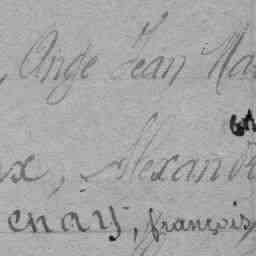 , Ange Jean Ma
en
ux, Alexand
enay, françois